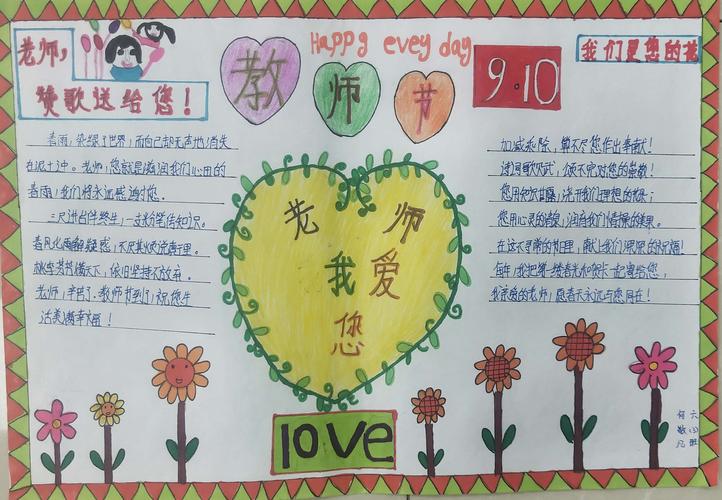 老师,
赞歌送给您!
Happy evey day
教
师
节
9.10
我们是您的花
春雨,染绿了世界,而自己却无声地消失
在泥土中。老师,您就是滋润我们心田的
春雨,我们将永远感谢您。
三尺讲台伴终生,一支粉笔传知识。
桃李芬芳满天下,依旧坚持不放弃。
老师,辛苦了,教师节到了,祝您生
活美满幸福!
老 师
我 爱
您
love
加减乘除,算不尽您作出的奉献!
诗词歌赋,颂不完对您的崇敬!
您用知识甘露,浇开我们理想的花朵;
您用心灵的清泉,润育我们情操的美果。
在这不寻常的节日里,献上我们深深的祝福!
我亲爱的老师,愿春天永远与您同在!
六
(3)
班